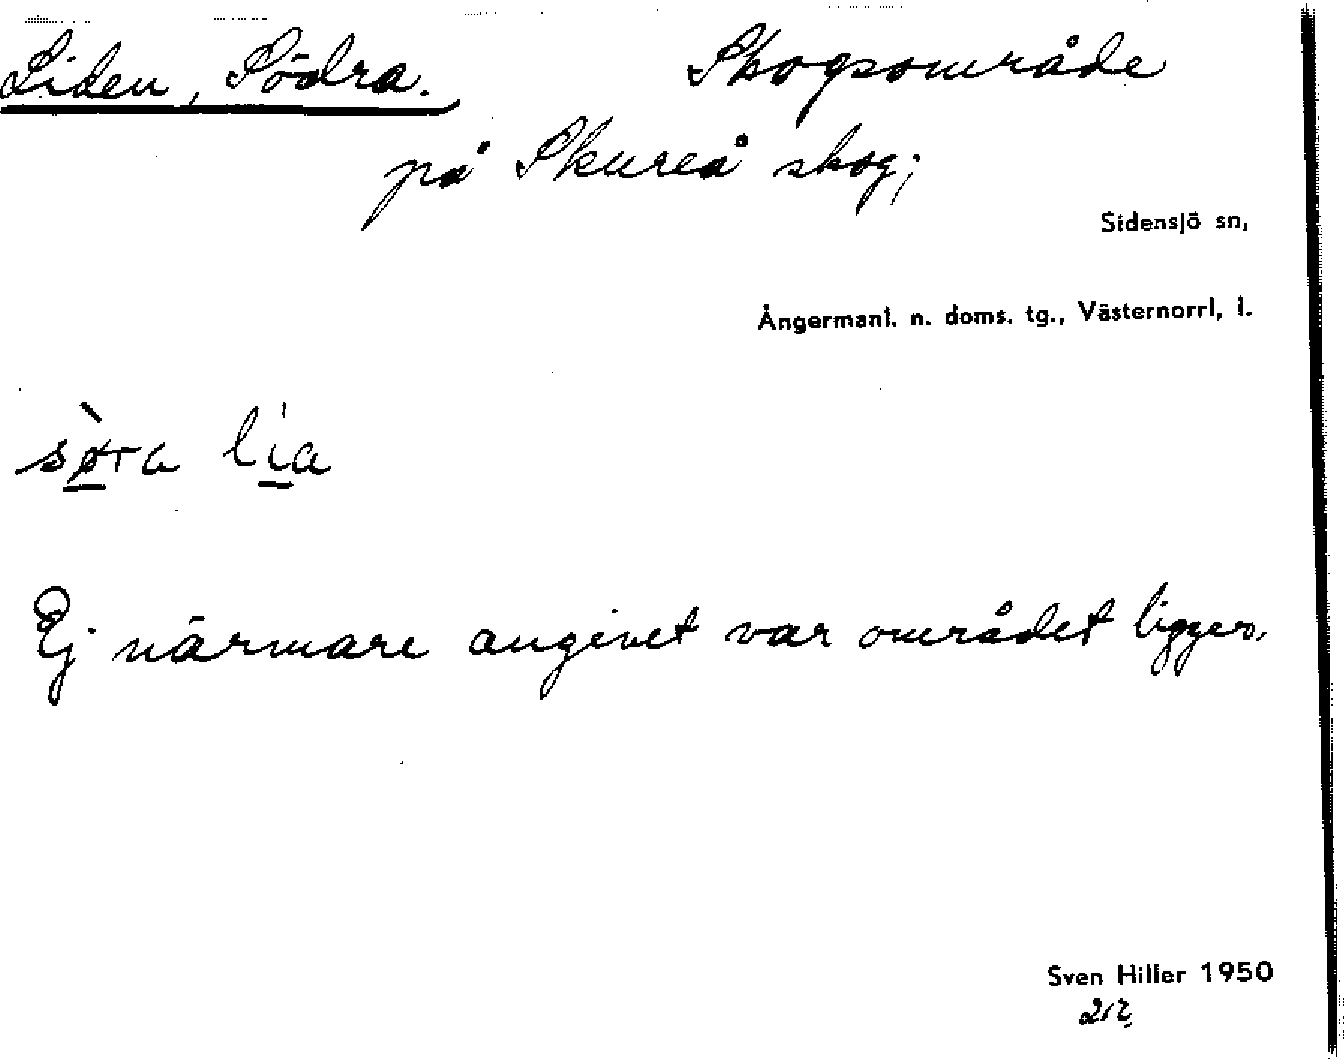 Liden, Södra. Skogsområde
på Skureå skog;
Sidensjö sn,
Ångermanl. n. doms. tg., Västernorrl, l.
sø̀ra lía
Ej närmare angivet var området ligger.
Sven Hiller 1950
212